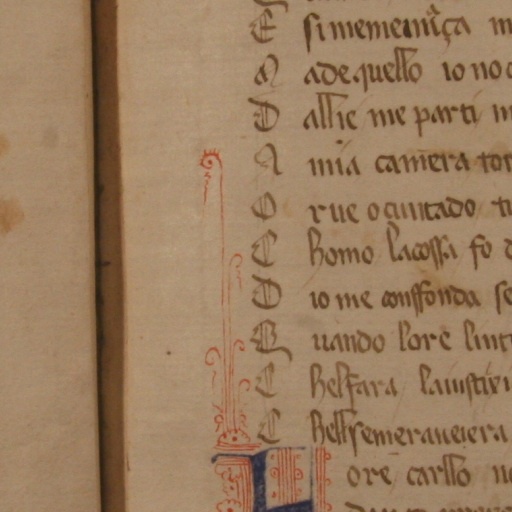 E si me meniça m
A de quello io no
D allie me parti m
A mia camera tor
O r ue o cuntado tu
C homo la cossa fo d
D io me conffonda se
Q uando lo re lint
C hel fara la iustixi
C hel se meraueiera
ore carllo no